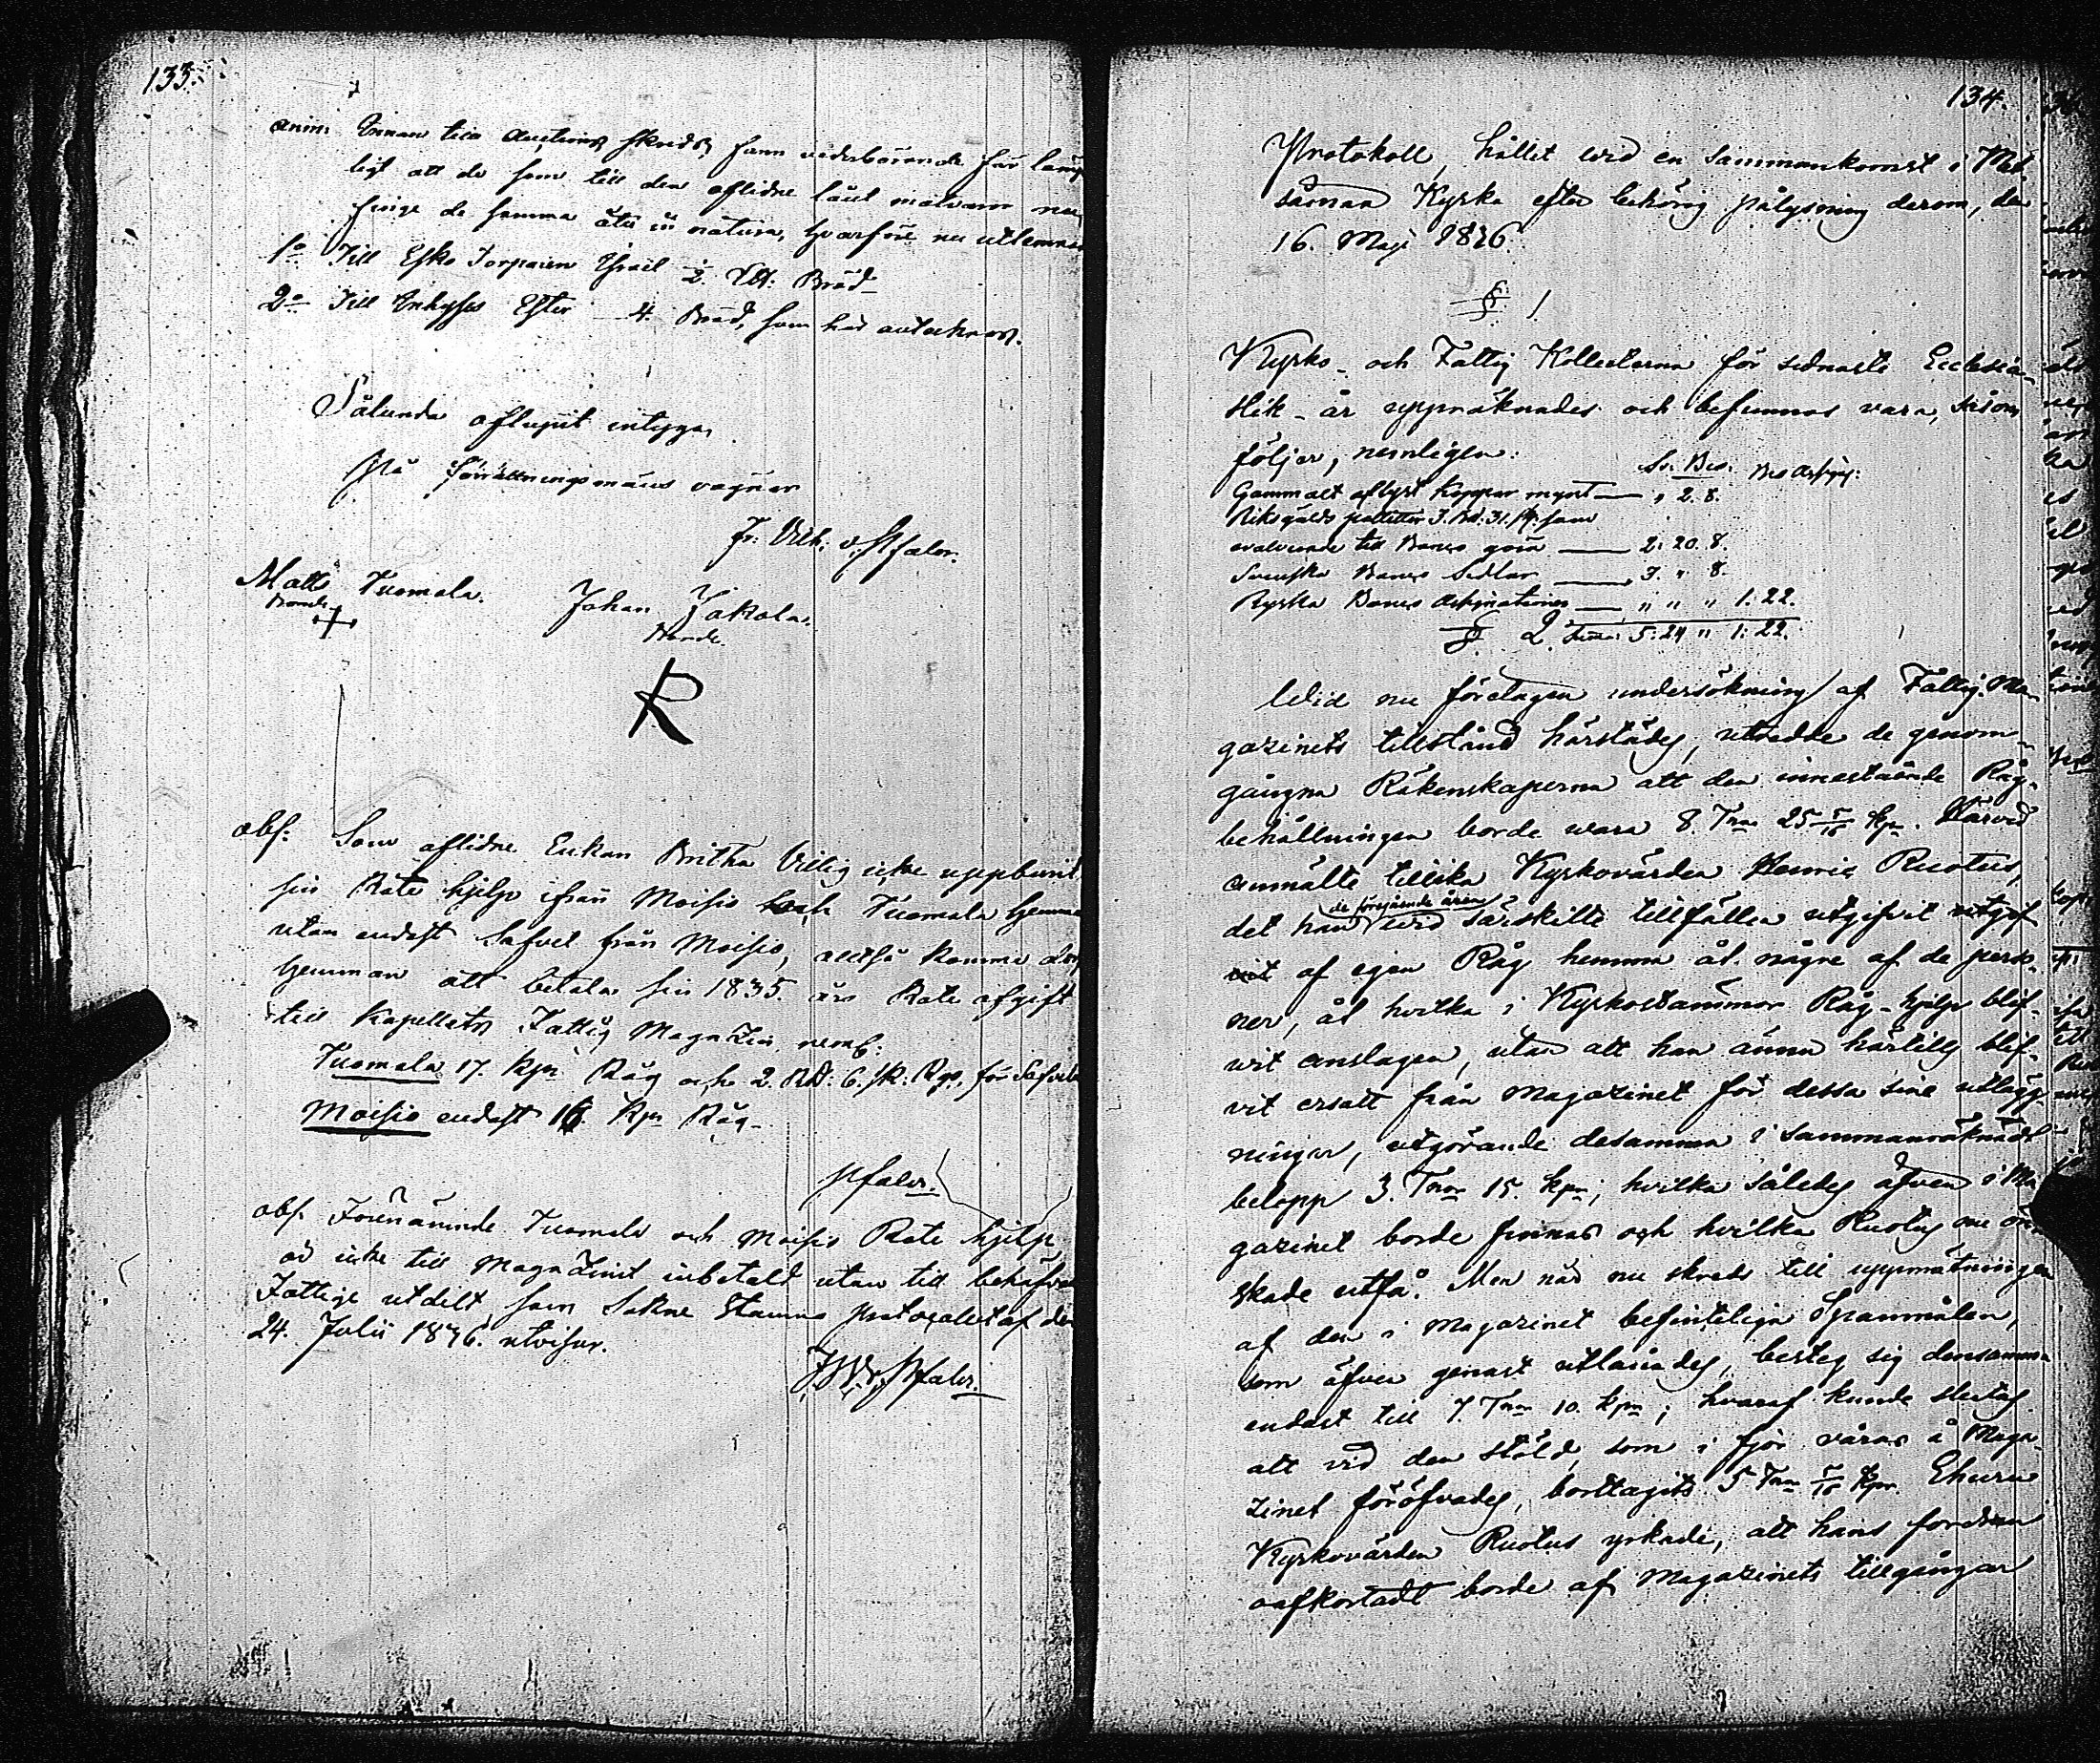 133.
anm: Innan till Auctions skreds, fann vederbörande för lämp
ligt att de som till den aflidne lånt matvaror nu
finge de samma åter in natura, hvarföre nu utlemnas
1o Till Esko Torparen Israel ½ Ltt: Bröd
2o Till Inhyses Ester 4. Bröd, som här antecknas.
Sålunda aflupit intyga,
På Förrättningsmäns vägnar
Fr: Vilh: v. Pfaler.
Matts Tuomala. Johan Jakola.
Bonde Bonde.
R
obs: Som aflidne Enkan Britha Villig icke uppburit
sin Rote hjelp ifrån Moisio och Tuomala Hemman
utan endast Safvel från Moisio, alltså komma dessa
Hemman att betala sin 1835. års Rote afgift
till Kapellets Fattig Magazin neml:
Tuomala 17. Kpr Råg och 2. RD: 6. sk: Rgs, för Safvel
Moisio endast 16. Kpr Råg.
Pfaler.
obs. Förenämnde Tuomala och Moisio Rote hjelp
är icke till Magazinet inbetald utan till behöfvande
Fattige utdelt, som Sockne Stämma protocollet af den
24. Julii 1836. utvisar.
F.W.v. Pfaler.
134.
Protokoll, hållet wid en Sammankomst i
Kyrka efter behörig pålysning derom, den
16. Maji 1836.
§ 1
Kyrko- och Fattig Kollecterna för sednaste Ecclesia-
stik-år uppräknades och befunnos vara, såsom
följer, nemligen:
Sv. Bco. Bco Assign:
Gammalt aflyst Koppar mynt — " 2. 8.
Riksgälds polletter 3. Rd: 31. sk. som
evalverade till Banco göra — 2: 20. 8.
Svenska Banco Sedlar — 3. " 8.
Ryska Banco Assignationer — " " " 1: 22.
§ 2. Summa: 5: 24 " 1: 22.
Wid nu företagen undersökning af Fattig Ma-
gazinets tillstånd härstädes, utredde de genom-
gångna Räkenskaperna att den innestående Råg-
behållningen borde wara 8. Tnr 25 5/16 kpr. Härvid
anmälte tillika Kyrkovärden Henric Ruotus,
de föregående åren
det han wid särskilte tillfällen utgifvit utgif
vit af egen Råg hemma åt någre af de perso-
ner, åt hvilka i Kyrkostämmor Råg-hjelp blif-
vit anslagen, utan att han ännu härtills blif-
vit ersatt från Magazinet för dessa sine utlägg
ningar, utgörande desamma i sammanräknadt
belopp 3. Tnr 15. kpr; hvilka således äfven i Ma
gazinet borde finnas och hvilka Ruotus nu ön
skade utfå. Men när nu skreds till uppmätningen
af den i Magazinet befinteliga Spannmålen,
som äfven genast utlånades, besteg sig densamma
endast till 7. Tnr 10. kpr; hvaraf kunde slutas
att vid den stöld, som i fjor våras å Maga-
zinet föröfvades, borttagits 5 Tnr 5/16 Kpr. Ehuru
Kyrkovärden Ruotus yrkade, att hans fordran
oafkortadt borde af Magazinets tillgångar